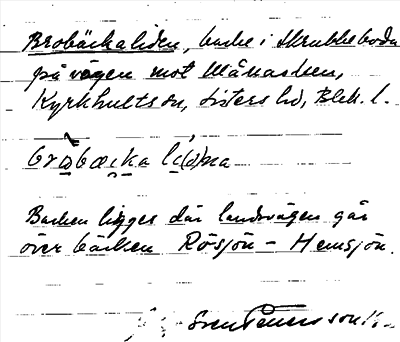 Brobäckaliden, backe i Skrubbeboda
på vägen mot Månasken,
Kyrkhults sn, Listers hd, Blek. l.
bro̱bæcka li(d)na
Backen ligges där landsvägen går
över bäcken Rösjön - Hemsjön.
Sven Petersson